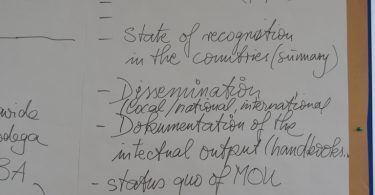 - State of recognition
in the countries (summary)
- Dissemination
(local/national, international
- Dokumentation of the
intectual output (handbooks..
- status quo of MOU